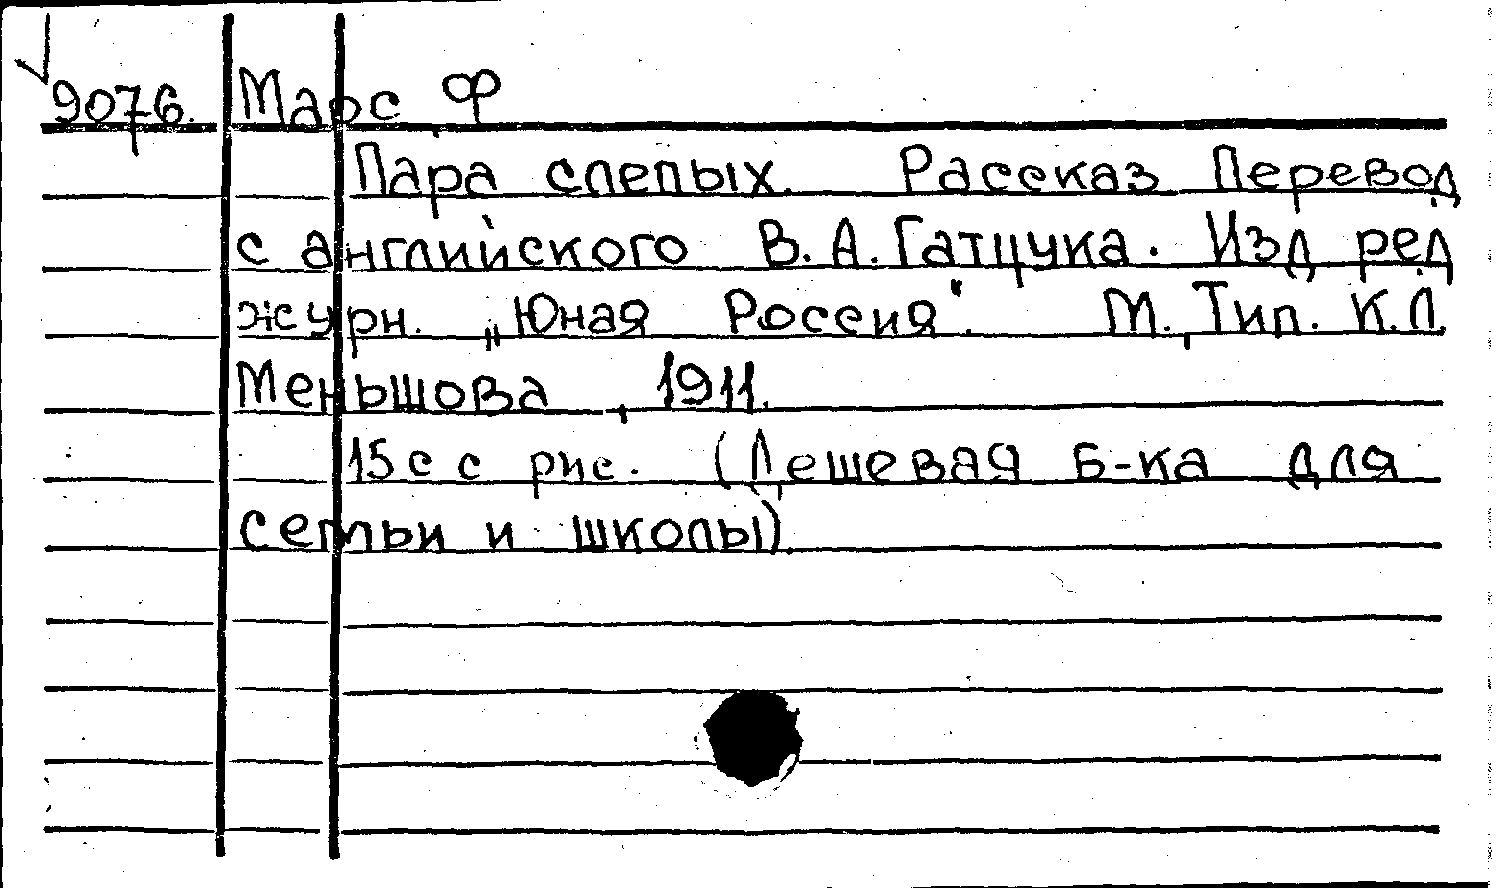 9076. Марс Ф
Пара слепых. Рассказ Перевод
с английского В. А. Гатцука. Изд ред
журн. „Юная Россия". М. Тип. К.Л.
Меньшова, 1911.
15 с с рис. (Дешевая Б-ка для
семьи и школы).